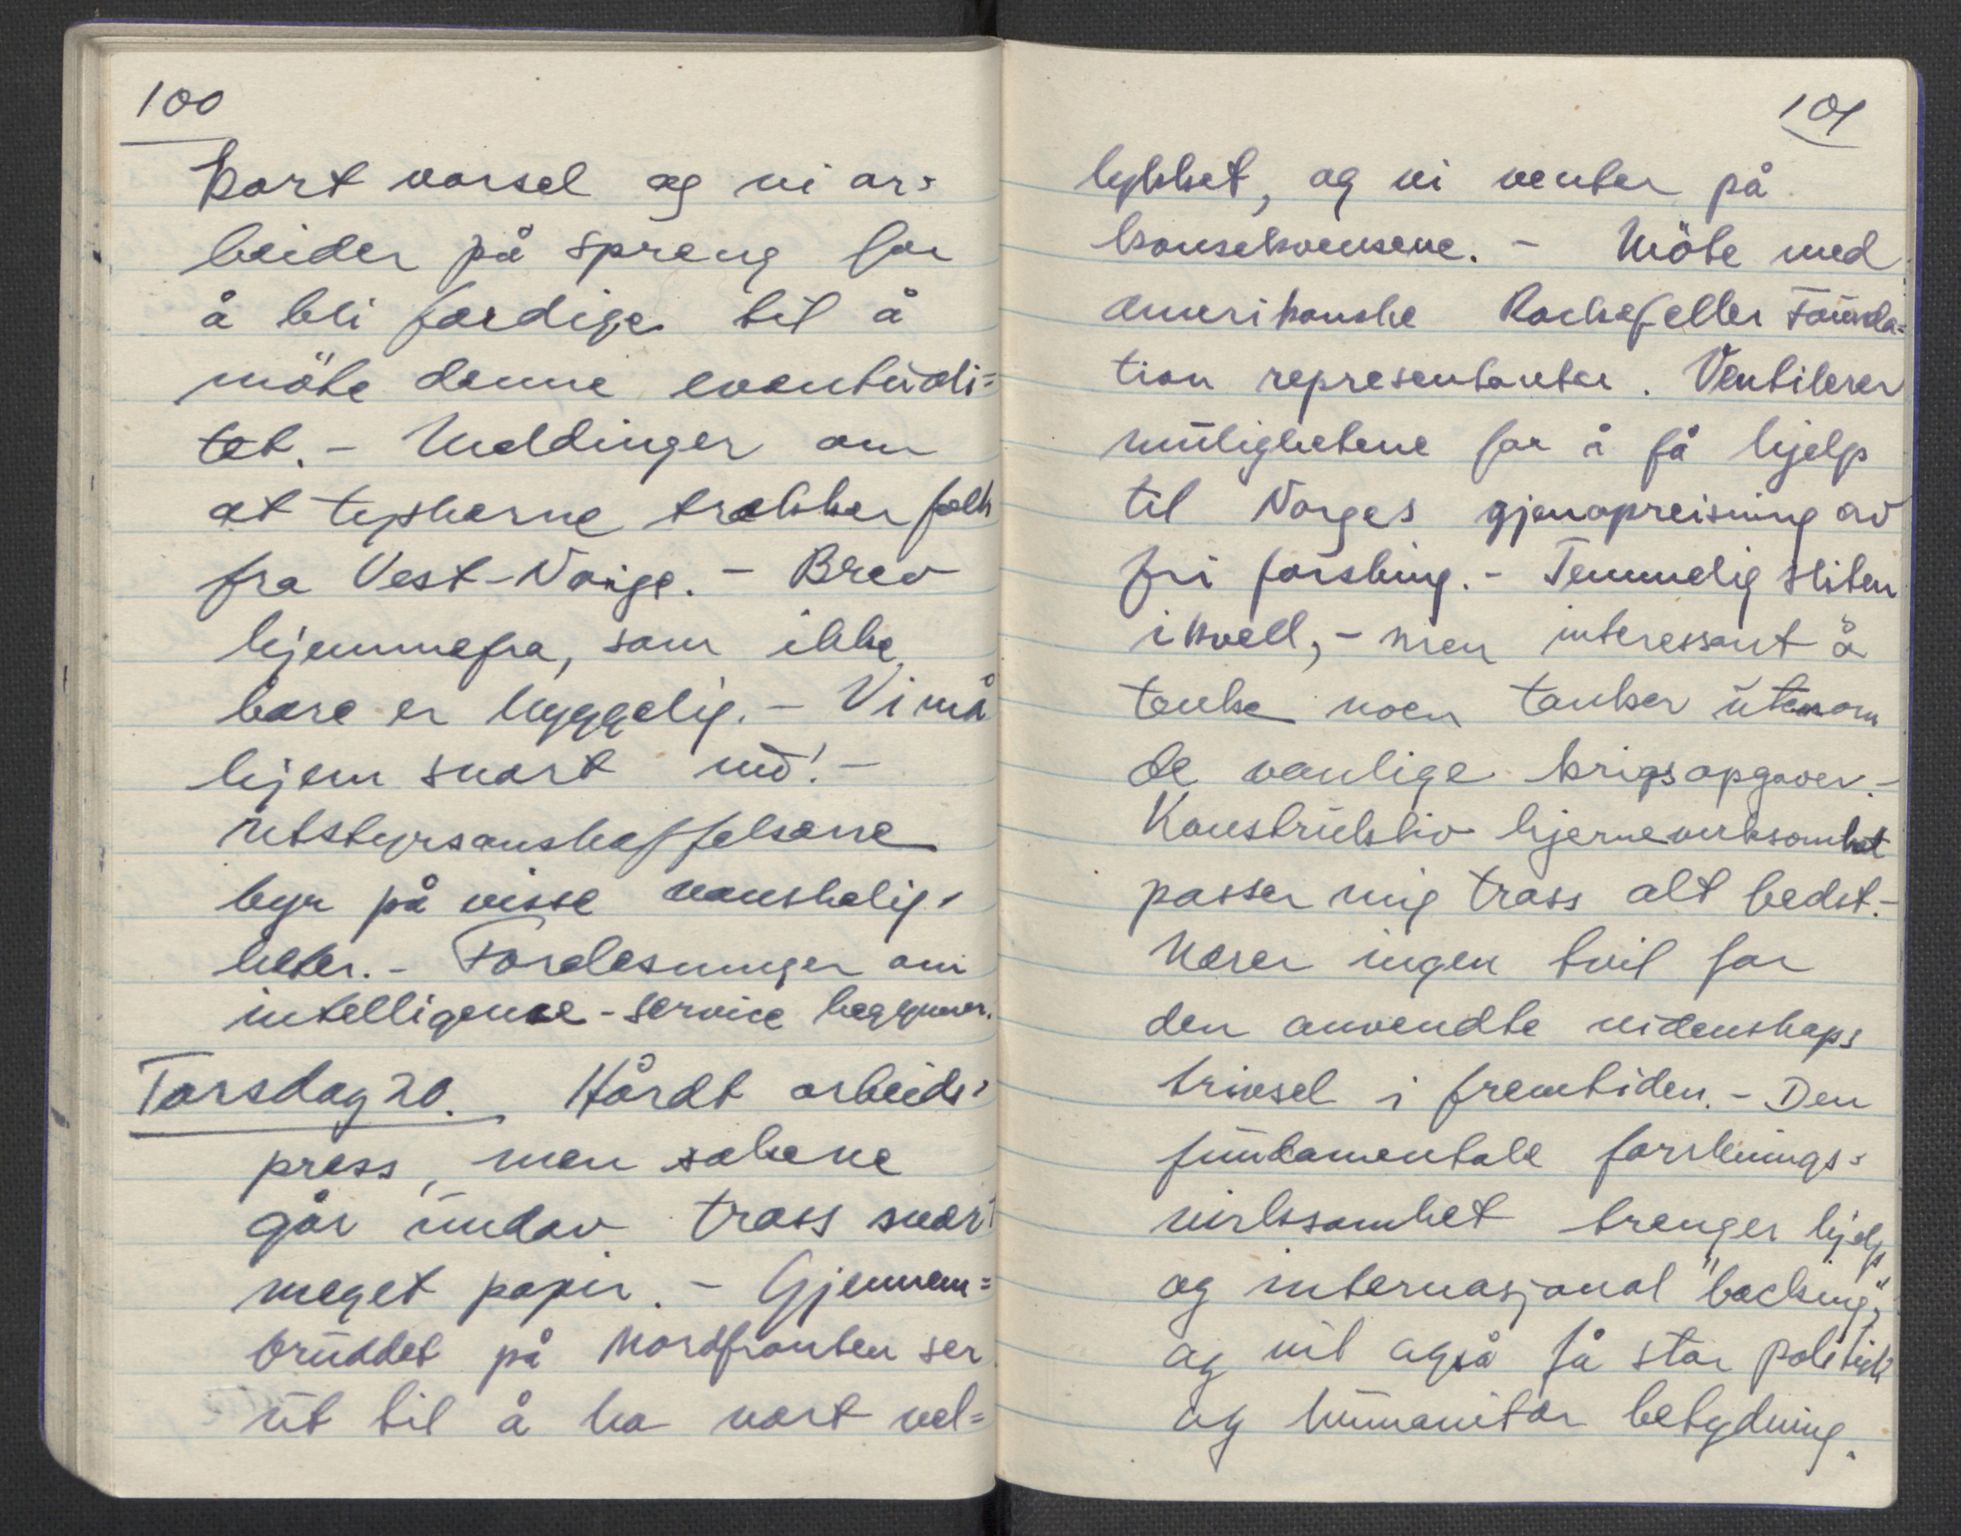 100
kort varsel og vi ar=
beider på spreng for
å bli færdige til å
möte denne eventuali=
tet. - Meldinger om
at tyskerne trekker folk
fra Vest-Norge. - Brev
hjemmefra, som ikke
bare er hyggelig. - Vi må
hjem snart nu! -
Utstyrsanskaffelsene
byr på visse vanskelig=
heter. - Forelesninger om
intelligence-service begynner.
Torsdag 20. Hårdt arbeids=
press, men sakene
går undav tross svært
meget papir. - Gjennem=
bruddet på Nordfronten ser
ut til å ha vært vel=
101
lykket, og vi venter på
konsekvensene. - Möte med
amerikanske Rockefeller Founda=
tion representanter. Ventilerer
mulighetene for å få hjelp
til Norges gjenopreisning av
fri forskning. - Temmelig sliten
ikvell, - men interessant å
tenke noen tanker utenom
de vanlige krigsopgaver. -
Konstruktiv hjernevirksomhet
passer mig tross alt bedst. -
Nærer ingen tvil for
den anvendte videnskaps
trivsel i fremtiden. - Den
fundamentale forsknings=
virksomhet trenger hjelp
og internasjonal "backing",
og vil også få stor politisk
og humanitær betydning.